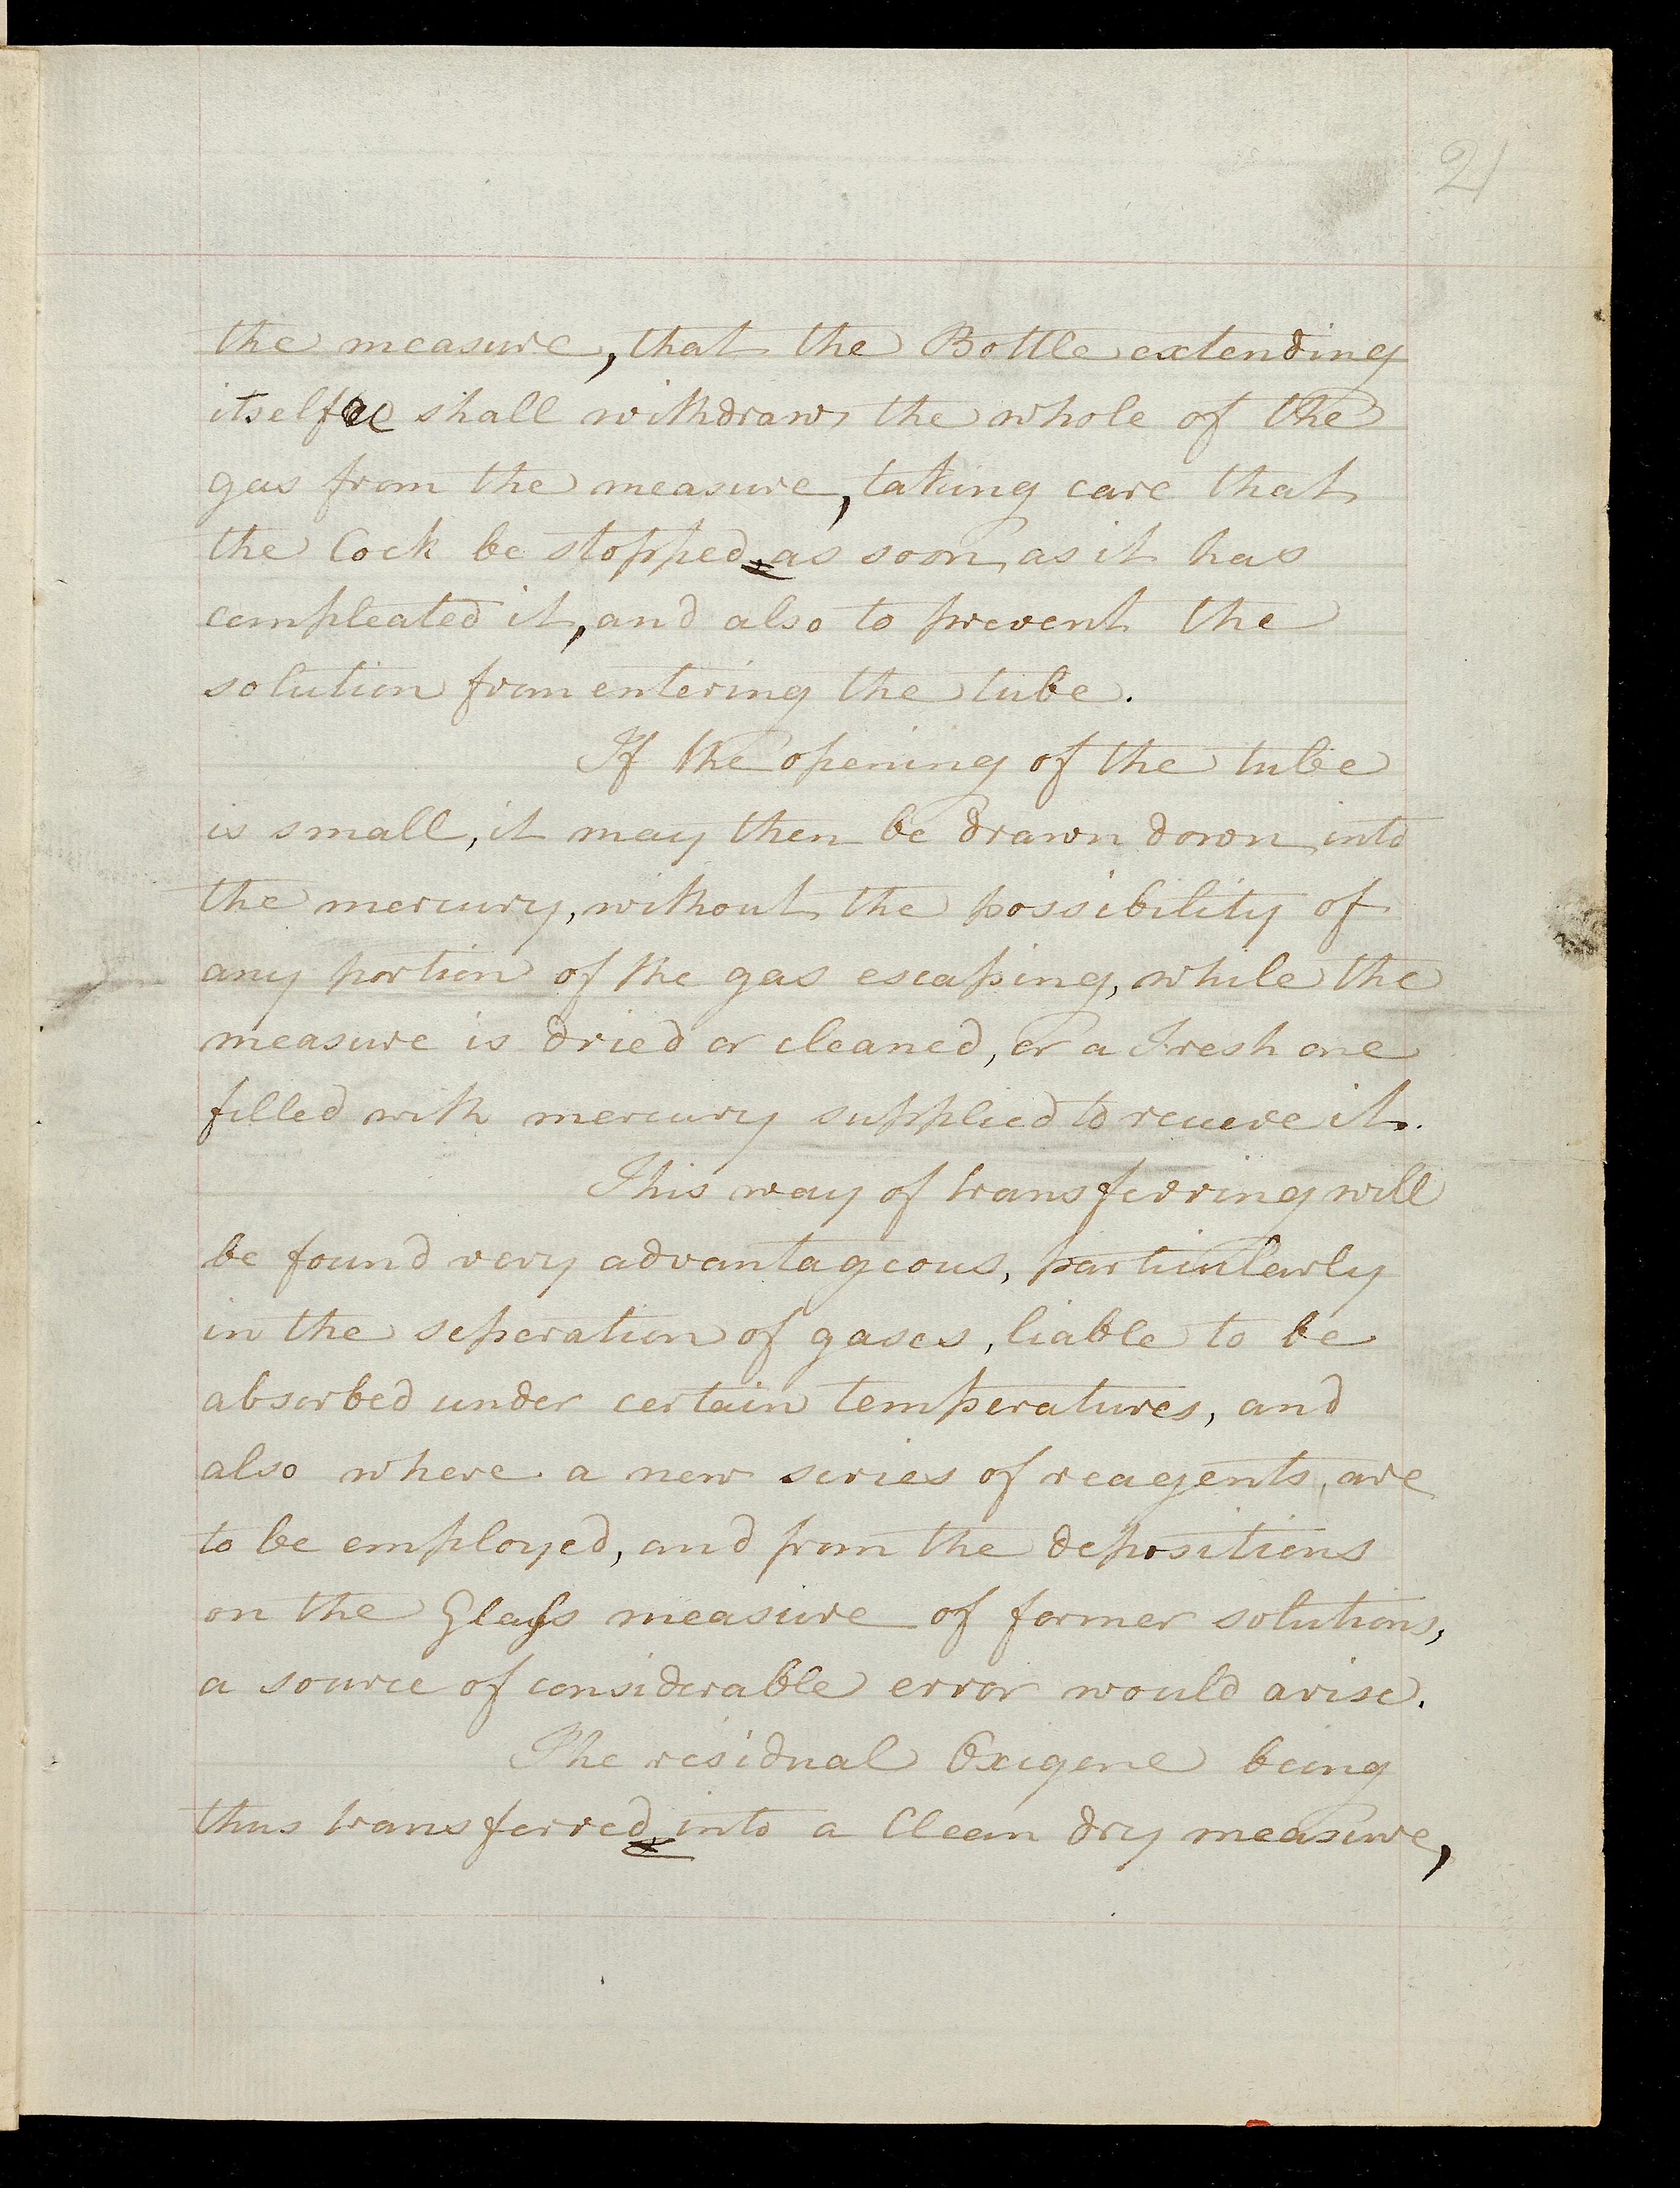 21
the measure, that the Bottle extending
itself shall withdraw the whole of the
gas from the measure, taking care that
the Cock be stopped as soon as it has
compleated it, and also to prevent the
solution from entering the tube.
If the opening of the tube
is small, it may then be drawn down into
the mercury, without the possibility of
any portion of the gas escaping, while the
measure is dried or cleaned, or a Fresh one
filled with mercury supplied to receive it.
This way of transferring will
be found very advantageous, particularly
in the seperation of gases, liable to be
absorbed under certain temperatures, and
also where a new series of reagents, are
to be employed, and from the depositions
on the Glass measure of former solutions,
a source of considerable error would arise.
The residual Oxigene being
thus transferred into a Clean dry measure,